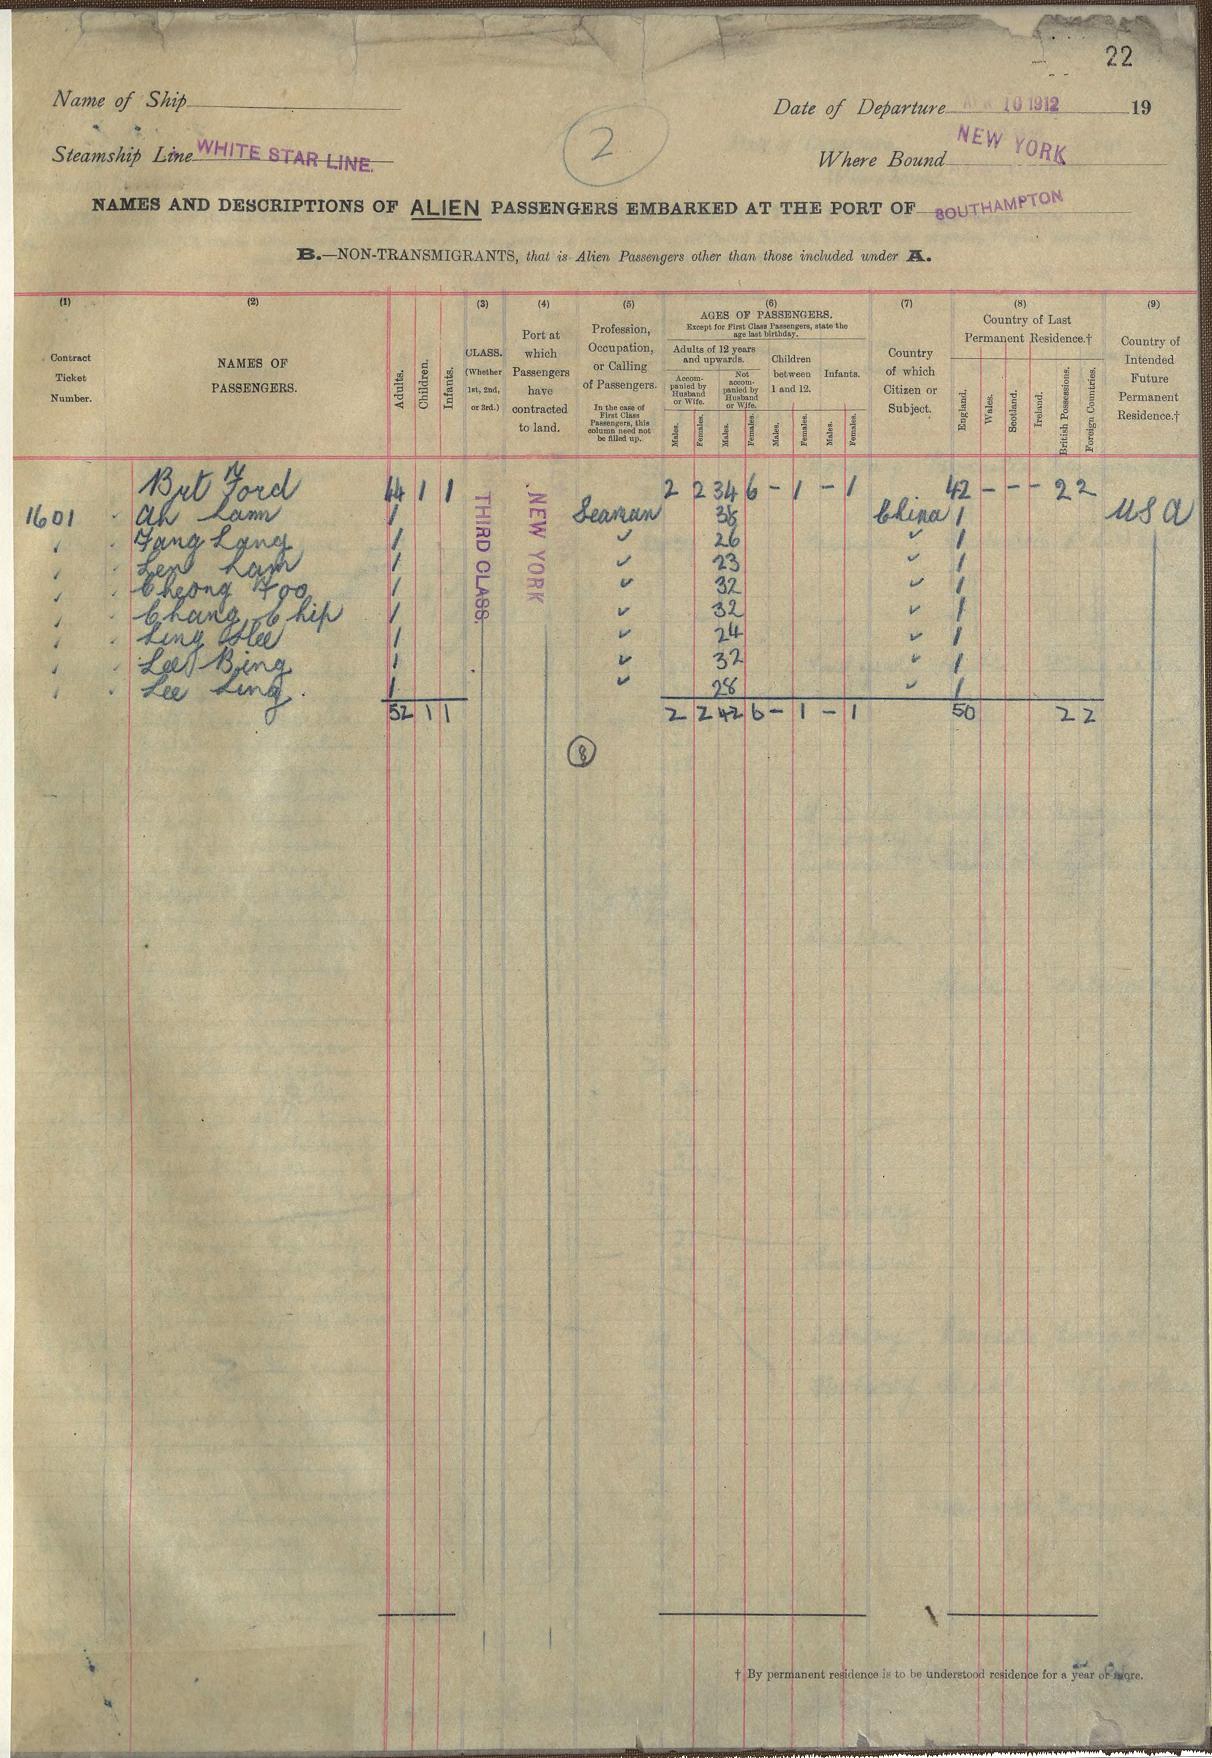 22
Name of Ship
Date of Departure APR 10 1912 19
2
Steamship Line WHITE STAR LINE.
Where Bound NEW YORK
NAMES AND DESCRIPTIONS OF ALIEN PASSENGERS EMBARKED AT THE PORT OF SOUTHAMPTON
B.—NON-TRANSMIGRANTS, that is Alien Passengers other than those included under A.
(1) (2) (3) (4) (5) (6) (7) (8) (9)
Contract Ticket Number.
NAMES OF PASSENGERS.
Adults.
Children.
Infants.
CLASS. (Whether 1st, 2nd, or 3rd.)
Port at which Passengers have contracted to land.
Profession, Occupation, or Calling of Passengers.
In the case of First Class Passengers, this column need not be filled up.
AGES OF PASSENGERS.
Except for First Class Passengers, state the age last birthday.
Adults of 12 years and upwards.
Children between 1 and 12.
Infants.
Accompanied by Husband or Wife.
Not accompanied by Husband or Wife.
Males. Females. Males. Females. Males. Females. Males. Females.
Country of which Citizen or Subject.
Country of Last Permanent Residence.†
England. Wales. Scotland. Ireland. British Possessions. Foreign Countries.
Country of Intended Future Permanent Residence.†
Brt Ford 44 1 1 2 2 34 6 - 1 - 1 42 - - - 2 2
1601 Ah Lam 1 Seaman 38 China 1 USA
Fang Lang 1 26 1
Len Lam 1 23 1
Cheong Foo 1 32 1
Chang Chip 1 32 1
Ling Hee 1 24 1
Lee Bing 1 32 1
Lee Ling 1 28 1
THIRD CLASS.
NEW YORK
52 1 1 2 2 42 6 - 1 - 1 50 2 2
8
† By permanent residence is to be understood residence for a year or more.